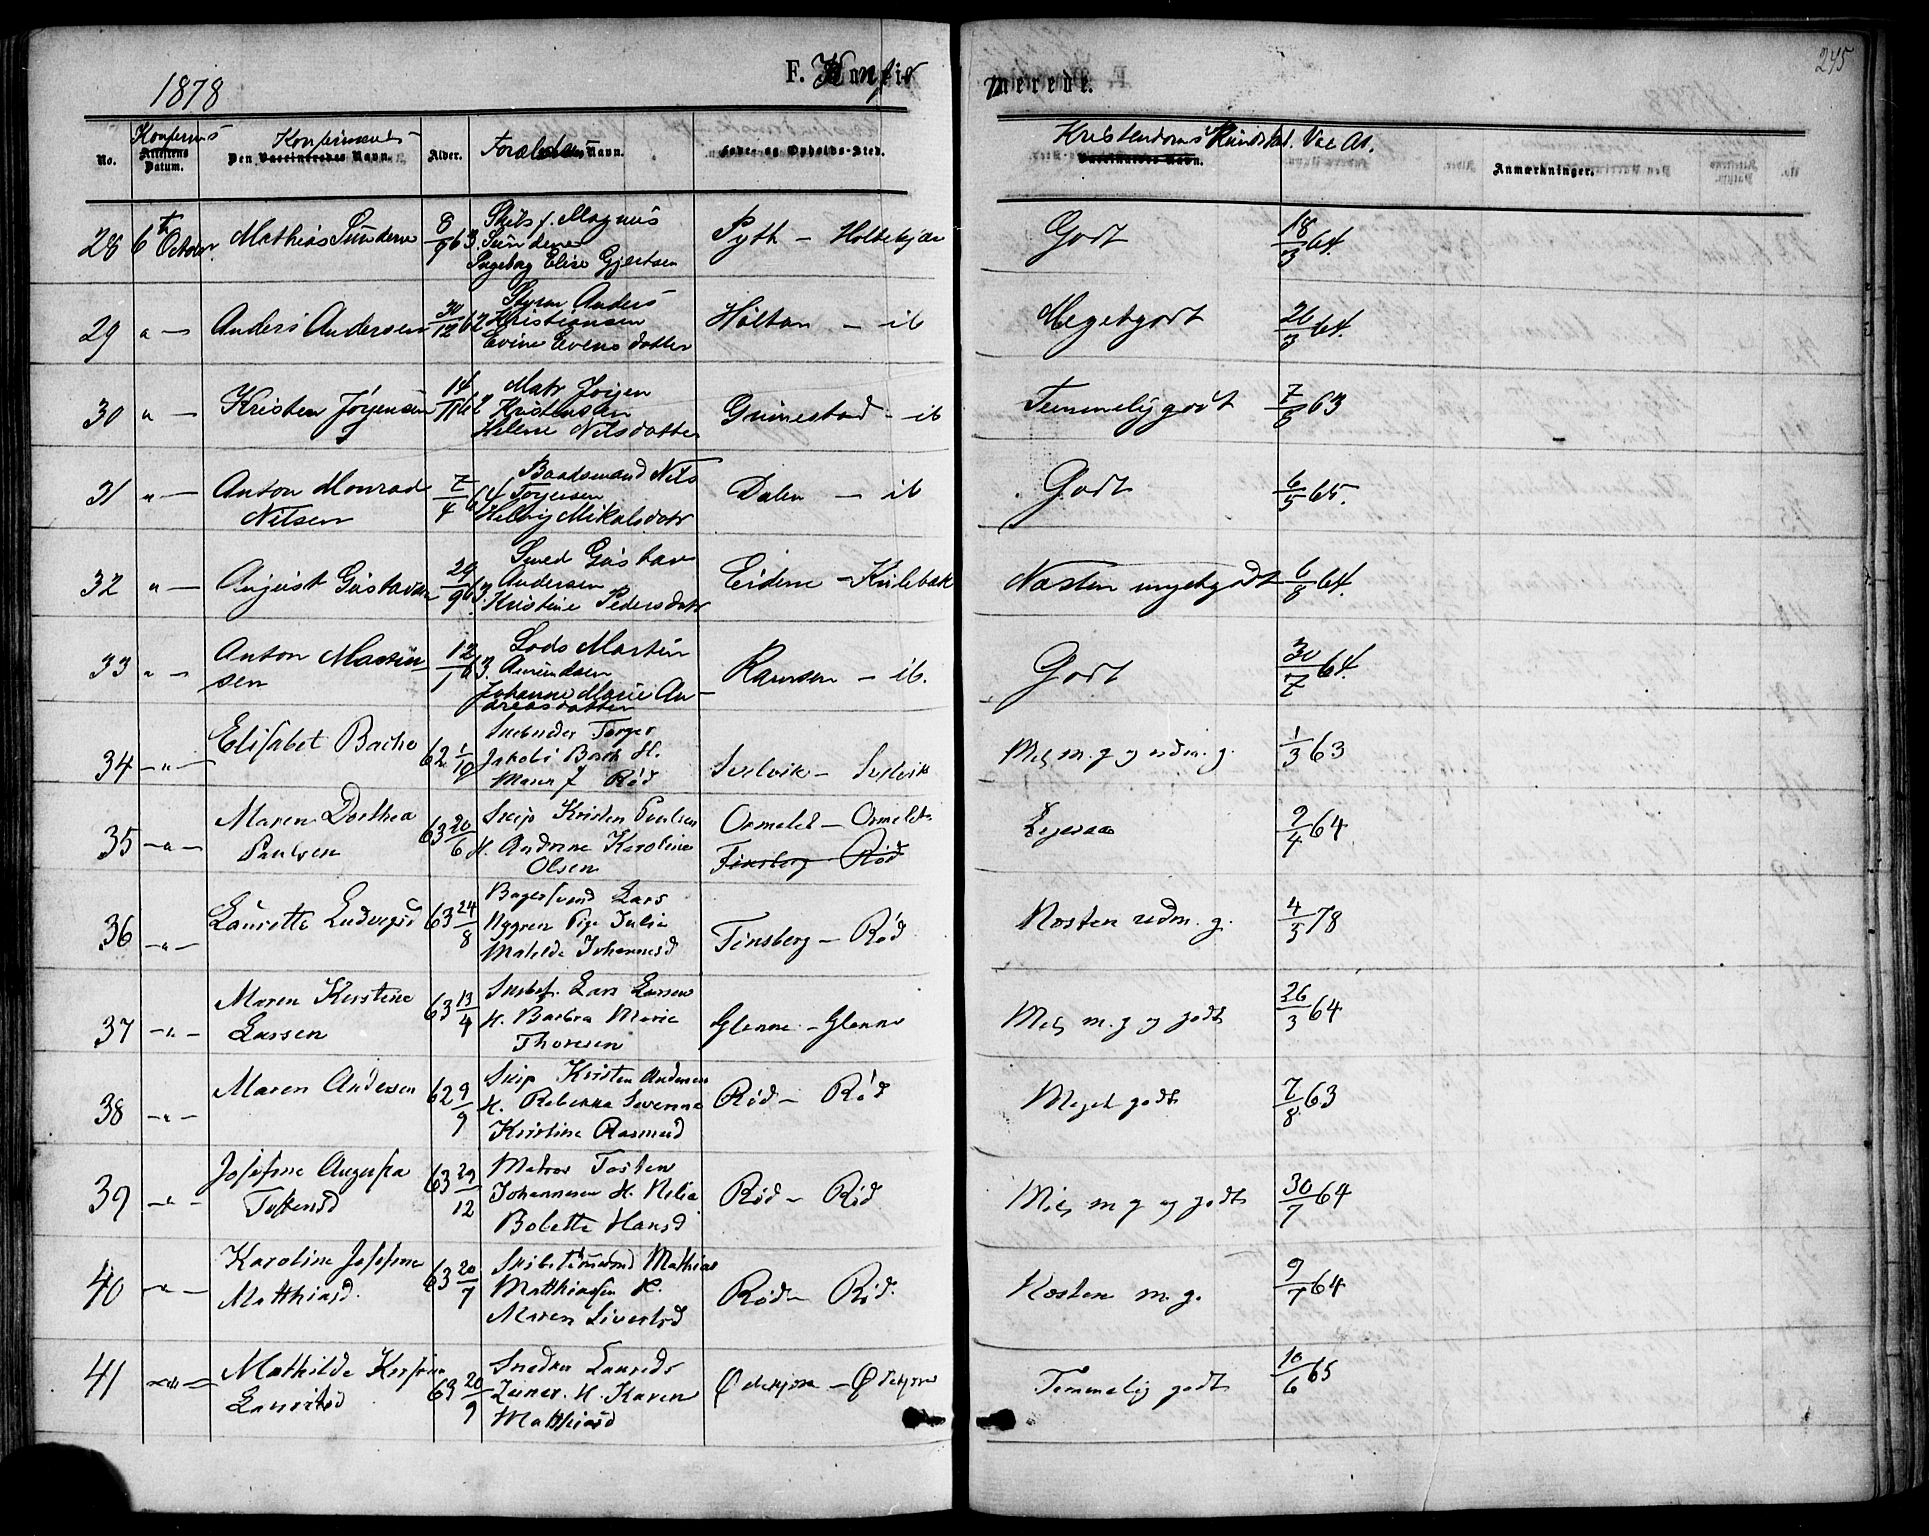 1878
F. Konfir
merede.
245
No.
Konferms
Attestens Datum.
Konfirmands
Den Vaccineredes Navn.
Alder.
Forældrenes Navn.
Føde- og Opholds-Sted.
Kristendoms Kundskab. Vac At.
Vaccinators Navn.
Anmærkninger.
28 6 October. Mathias Sundene 8/9 63. Skibsf. Magnus
Sundene
Ingeborg Elise Gjertsen
Pyth — Holtekjær
Godt 18/3 64.
29 " — Anders Andersen 30/12 62 Styrm Anders
Kristiansen
Evine Evensdatter
Holtan — ib
Megetgodt 26/3 64.
30 " — Kristen Jørgensen 14/11 62 Matr Jørgen
Kristensen
Helene Nilsdatter
Grimestad — ib
Temmeliggodt 7/8 63
31 " — Anton Monrad
Nilsen
7/4 64 Baadsmand Nils
Torjersen
Helvig Mikalsdatr
Dalen — ib
Godt 6/5 65.
32 " — August Gustavsen 20/9 63. Smed Gustav
Andersen
Kristine Pedersdatr
Eidene — Kulebæk
Næsten megetgodt 6/8 64.
33 " — Anton Martin
sen
12/1 63. Lods Martin
Amundsen
Johanne Marie An-
dreasdatter
Ramsøen — ib.
Godt 30/7 64.
34 — " — Elisabet Bache 62 1/10 Skibsreder Torger
Jakobs Bach H.
Maren J Rød
Svelvik — Svelvik
Mel m. g og udm. g. 1/3 63
35 — " — Maren Dorthea
Paulsen
63 20/6 Skip Kristen Paulsen
H. Andrine Karoline
Olsen
Ormelet — Ormelet
Tønsberg — Rød
2/4 64
36 — " — Laurette Ludvigsd 63 24/8 Bagersvend Lars
Nygren Pige Julie
Matilde Johannesd
Tønsberg — Rød
Næsten udm. g. 4/5 78
37 — " — Maren Kirstine
Larsen
63 13/4 Skibsf. Lars Larsen
H. Barbra Marie
Thoresen
Glenne — Glenne
Mel m. g og godt 26/3 64
38 — " — Maren Andersen 62 9/9 Skip Kristen Andersen
H. Rebekka Severine
Kristine Rasmusd
Rød — Rød
Meget godt 7/8 63
39 — " — Josefine Augusta
Tostensd
63 29/12 Matros Tosten
Johannesen H. Nelia
Bolette Hansd
Rød — Rød
Mel m g og godt 30/7 64
40 — " — Karoline Josefine
Matthiasd.
63 20/7 Skibstømmermd Mathias
Matthiassen H.
Maren Sivertsd
Rød — Rød.
Næsten m. g. 9/7 64
41 — " — Mathilde Kristine
Lauritsd
63 20/9 Snedker Laurids
H. Karen
Matthiasd
Ødekjær — Ødekjær
Temmelig godt 10/6 65